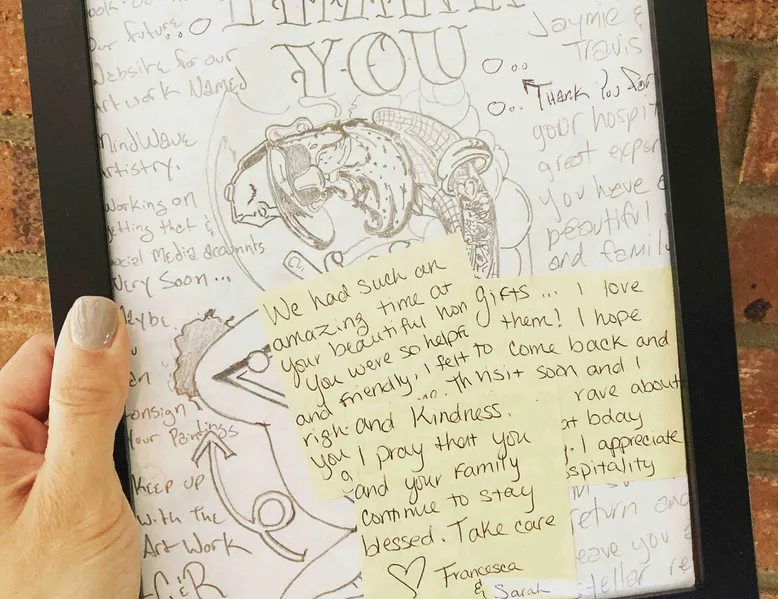 THANK
YOU
Our future
Website for our
Art work Named
MindWave
Artistry.
Working on
getting that &
Social Media accounts
Very Soon...
Maybe
Consign
Your Paintings
Keep up
with the
Art Work
Jaymie &
Travis
Thank You For
your hospit
great exper
you have
beautiful
and family
We had such an
amazing time at
your beautiful hom
You were so helpf
and friendly. I felt
righ
you
gifts ... I love
them! I hope
to come back and
visit soon and I
rave about
at bday
I appreciate
spitality
and Kindness.
I pray that you
and your Family
continue to stay
blessed. Take care
♡ Francesca
& Sarah
return and
leave you
stellar re